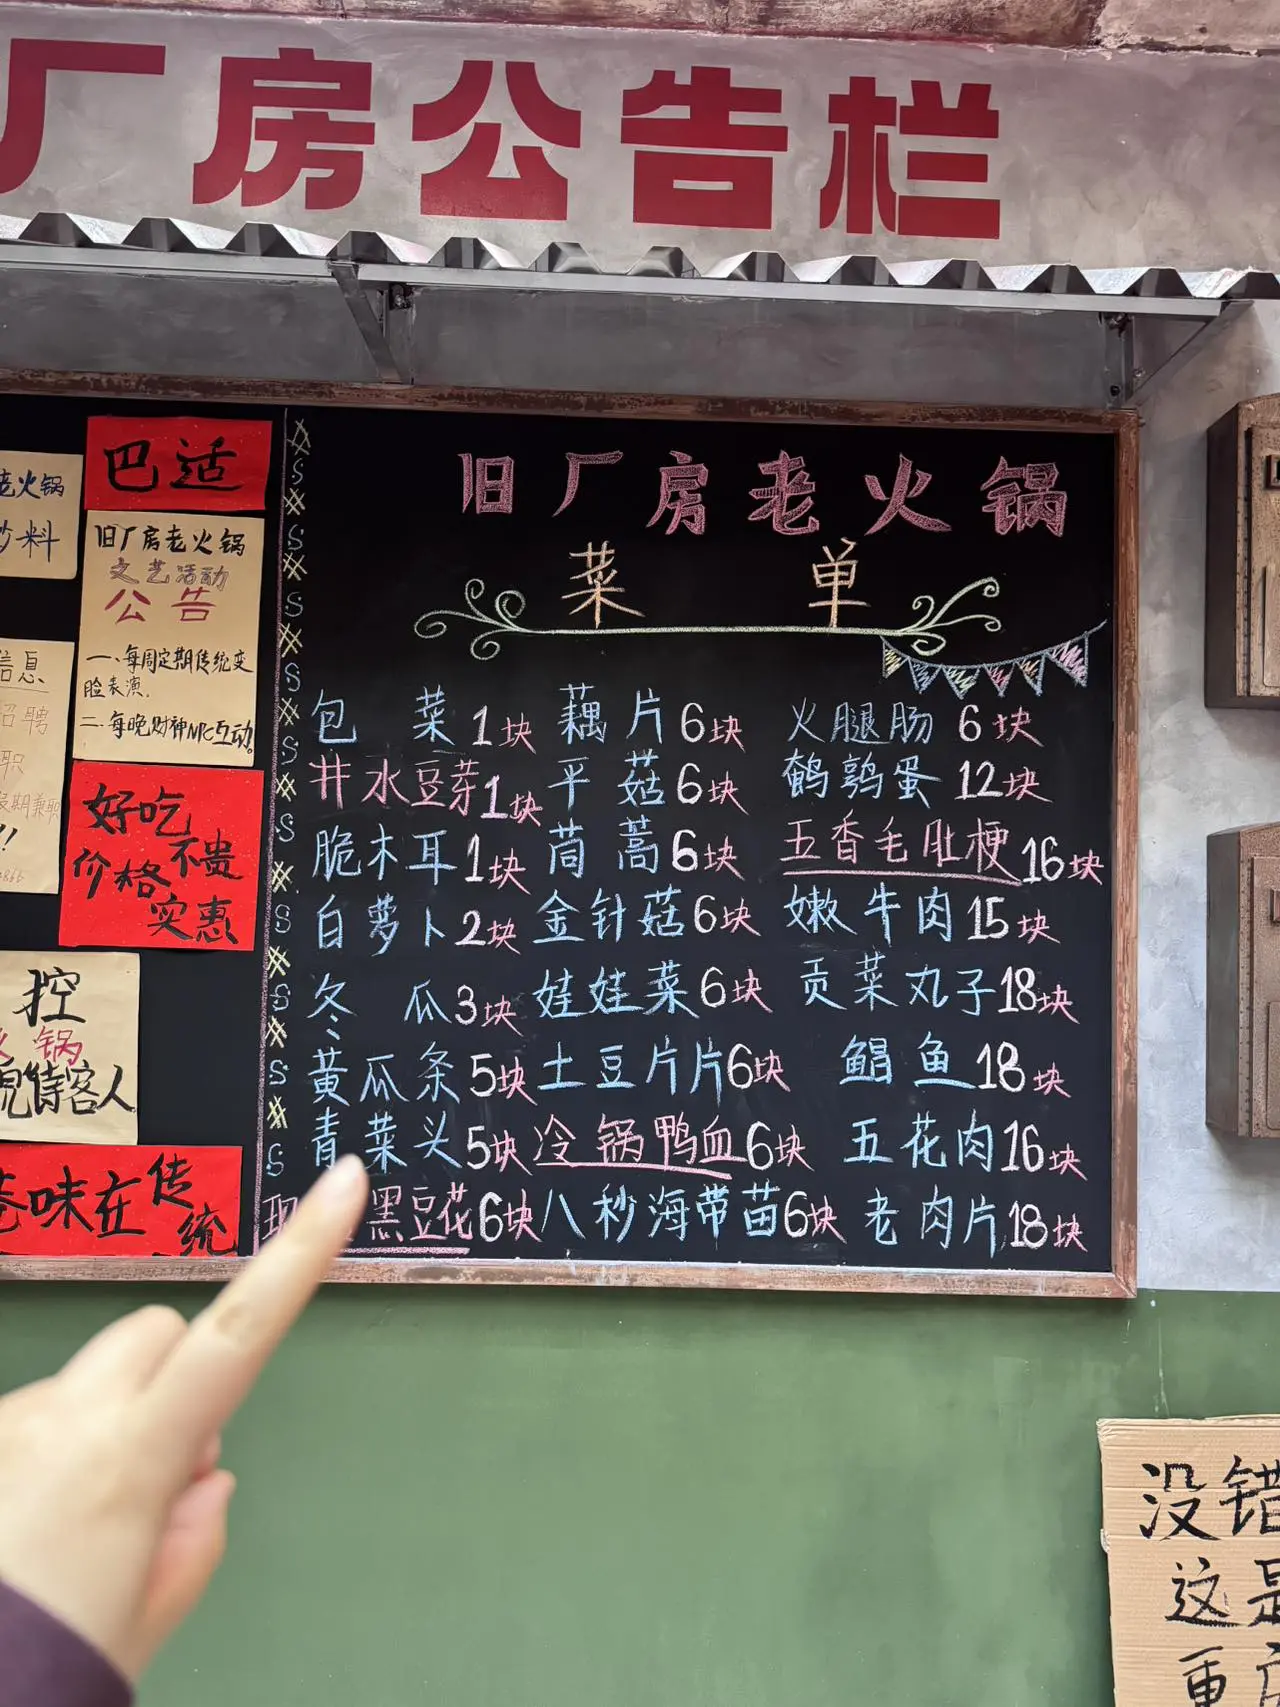 厂房公告栏
旧厂房老火锅
菜单
包菜1块 藕片6块 火腿肠6块
井水豆芽1块 平菇6块 鹌鹑蛋12块
脆木耳1块 茼蒿6块 五香毛肚梗16块
白萝卜2块 金针菇6块 嫩牛肉15块
冬瓜3块 娃娃菜6块 贡菜丸子18块
黄瓜条5块 土豆片片6块 鲳鱼18块
青菜头5块 冷锅鸭血6块 五花肉16块
黑豆花6块 八秒海带苗6块 老肉片18块
巴适
旧厂房老火锅
文艺活动
公告
一、每周定期传统变
脸表演.
二、每晚财神NPC互动。
好吃
不贵
价格
实惠
老火锅
炒料
信息
招聘
职
假期兼职
控
火锅
待客人
味在传
统
没错
这是